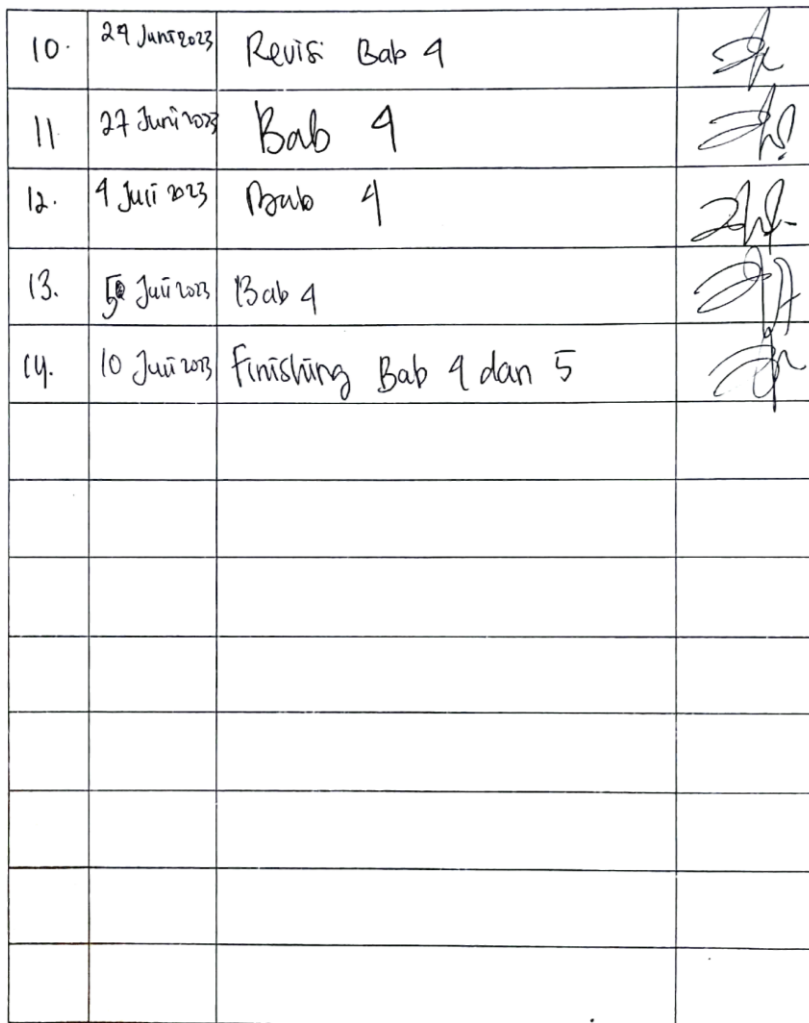 10. 24 Juni 2023 Revisi Bab 4
11 27 Juni 2023 Bab 4
12. 4 Juli 2023 Bab 4
13. 5 Juli 2023 Bab 4
14. 10 Juli 2023 Finishing Bab 4 dan 5